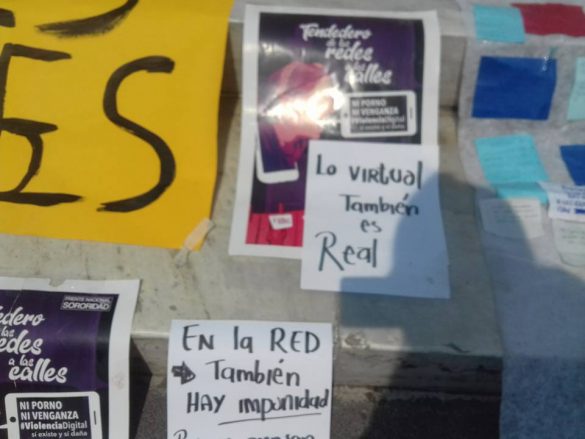 ES
Tendedero
de las
redes
a las
calles
NI PORNO
NI VENGANZA
#ViolenciaDigital
sí existe y sí daña
Lo VIRTUAL
También
es
Real
FRENTE NACIONAL
SORORIDAD
dedero
las
edes
a las
calles
NI PORNO
NI VENGANZA
#ViolenciaDigital
sí existe y sí daña
EN la RED
También
HAY impunidad